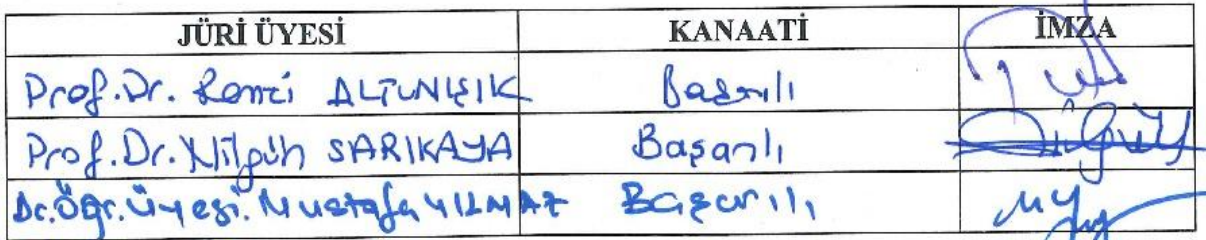 JÜRİ ÜYESİ KANAATİ İMZA
Prof.Dr. Remzi ALTUNIŞIK Başarılı
Prof.Dr. Nilgün SARIKAYA Başarılı
Dr.Öğr.Üyesi. Mustafa YILMAZ Başarılı